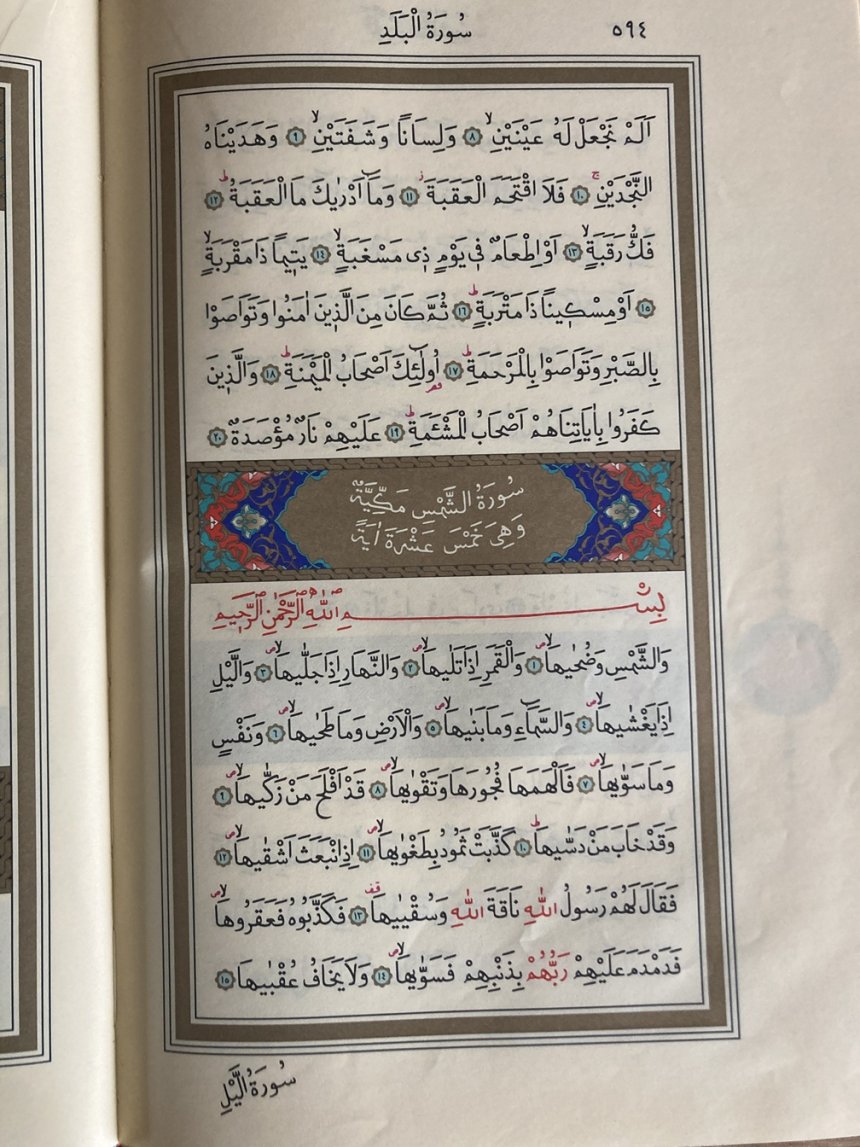 سُورَةُ الْبَلَدِ ٥٩٤
اَلَمْ نَجْعَلْ لَهُ عَيْنَيْنِۙ ﴿٨﴾ وَلِسَانًا وَشَفَتَيْنِۙ ﴿٩﴾ وَهَدَيْنَاهُ
النَّجْدَيْنِۚ ﴿١٠﴾ فَلَا اقْتَحَمَ الْعَقَبَةَۘ ﴿١١﴾ وَمَٓا اَدْرٰيكَ مَا الْعَقَبَةُۜ ﴿١٢﴾
فَكُّ رَقَبَةٍۙ ﴿١٣﴾ اَوْ اِطْعَامٌ ف۪ي يَوْمٍ ذ۪ي مَسْغَبَةٍۙ ﴿١٤﴾ يَت۪يمًا ذَا مَقْرَبَةٍۙ
﴿١٥﴾ اَوْ مِسْك۪ينًا ذَا مَتْرَبَةٍۜ ﴿١٦﴾ ثُمَّ كَانَ مِنَ الَّذ۪ينَ اٰمَنُوا وَتَوَاصَوْا
بِالصَّبْرِ وَتَوَاصَوْا بِالْمَرْحَمَةِۜ ﴿١٧﴾ اُو۬لٰٓئِكَ اَصْحَابُ الْمَيْمَنَةِۜ ﴿١٨﴾ وَالَّذ۪ينَ
كَفَرُوا بِاٰيَاتِنَا هُمْ اَصْحَابُ الْمَشْـَٔمَةِۜ ﴿١٩﴾ عَلَيْهِمْ نَارٌ مُؤْصَدَةٌ ﴿٢٠﴾
سُورَةُ الشَّمْسِ مَكِّيَّةٌ
وَهِيَ خَمْسَ عَشْرَةَ اٰيَةً
بِسْمِ اللّٰهِ الرَّحْمٰنِ الرَّح۪يمِ
وَالشَّمْسِ وَضُحٰيهَاۙۖ ﴿١﴾ وَالْقَمَرِ اِذَا تَلٰيهَاۙۖ ﴿٢﴾ وَالنَّهَارِ اِذَا جَلّٰيهَاۙۖ ﴿٣﴾ وَالَّيْلِ
اِذَا يَغْشٰيهَاۙۖ ﴿٤﴾ وَالسَّمَٓاءِ وَمَا بَنٰيهَاۙۖ ﴿٥﴾ وَالْاَرْضِ وَمَا طَحٰيهَاۙۖ ﴿٦﴾ وَنَفْسٍ
وَمَا سَوّٰيهَاۙۖ ﴿٧﴾ فَاَلْهَمَهَا فُجُورَهَا وَتَقْوٰيهَاۙۖ ﴿٨﴾ قَدْ اَفْلَحَ مَنْ زَكّٰيهَاۙۖ ﴿٩﴾
وَقَدْ خَابَ مَنْ دَسّٰيهَاۜ ﴿١٠﴾ كَذَّبَتْ ثَمُودُ بِطَغْوٰيهَاۙۖ ﴿١١﴾ اِذِ انْبَعَثَ اَشْقٰيهَاۙۖ ﴿١٢﴾
فَقَالَ لَهُمْ رَسُولُ اللّٰهِ نَاقَةَ اللّٰهِ وَسُقْيٰيهَا ﴿١٣﴾ فَكَذَّبُوهُ فَعَقَرُوهَاۙۖ
فَدَمْدَمَ عَلَيْهِمْ رَبُّهُمْ بِذَنْبِهِمْ فَسَوّٰيهَاۙۖ ﴿١٤﴾ وَلَا يَخَافُ عُقْبٰيهَا ﴿١٥﴾
سُورَةُ الَّيْلِ